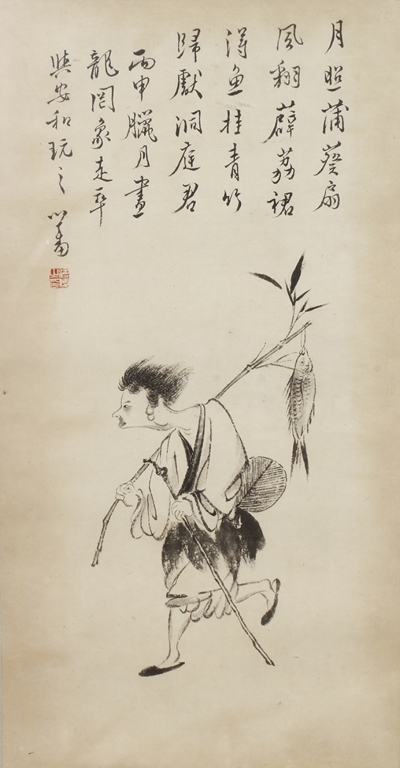 月照蒲葵扇
風翻薜荔裙
淂魚挂青竹
歸獻洞庭君
丙申臘月畫
龍罔象走卒
與安和玩之 心畬